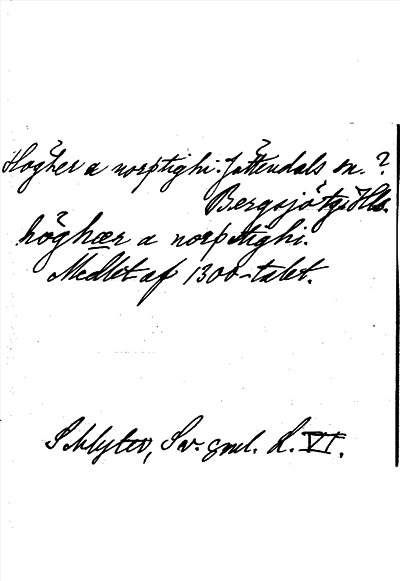 Högher a norþtighi. Jättendals sn. ?
Bergsjö tgs Hls.
höghær a norþstighi.
Medlet af 1300-talet.
Schlyter, Sv. gml. L. VI.